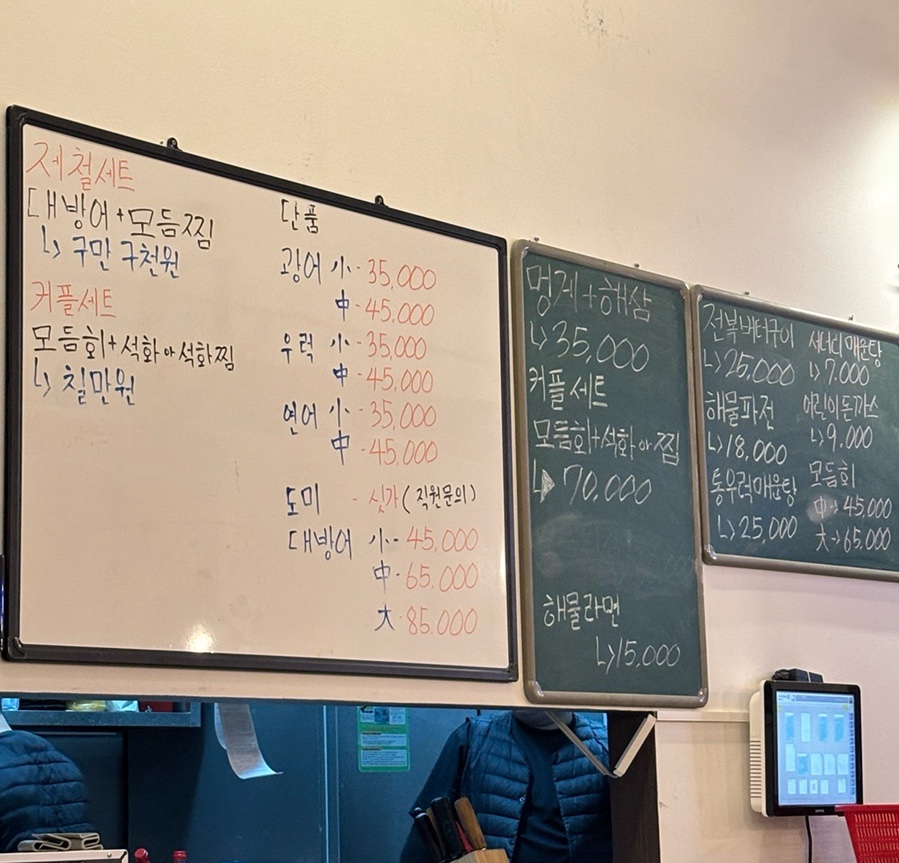 제철세트
대방어+모듬찜
↳ 구만 구천원
커플세트
모듬회+석화or석화찜
↳ 칠만원
단품
광어 小-35,000
中-45,000
우럭 小-35,000
中-45,000
연어 小-35,000
中-45,000
도미 - 싯가(직원문의)
대방어 小-45,000
中-65,000
大-85,000
멍게+해삼
↳35,000
커플세트
모듬회+석화or찜
↳70,000
해물라면
↳15,000
전복버터구이
↳25,000
해물파전
↳18,000
통우럭매운탕
↳25,000
서더리매운탕
↳7,000
어린이돈까스
↳9,000
모듬회
中→45,000
大→65,000